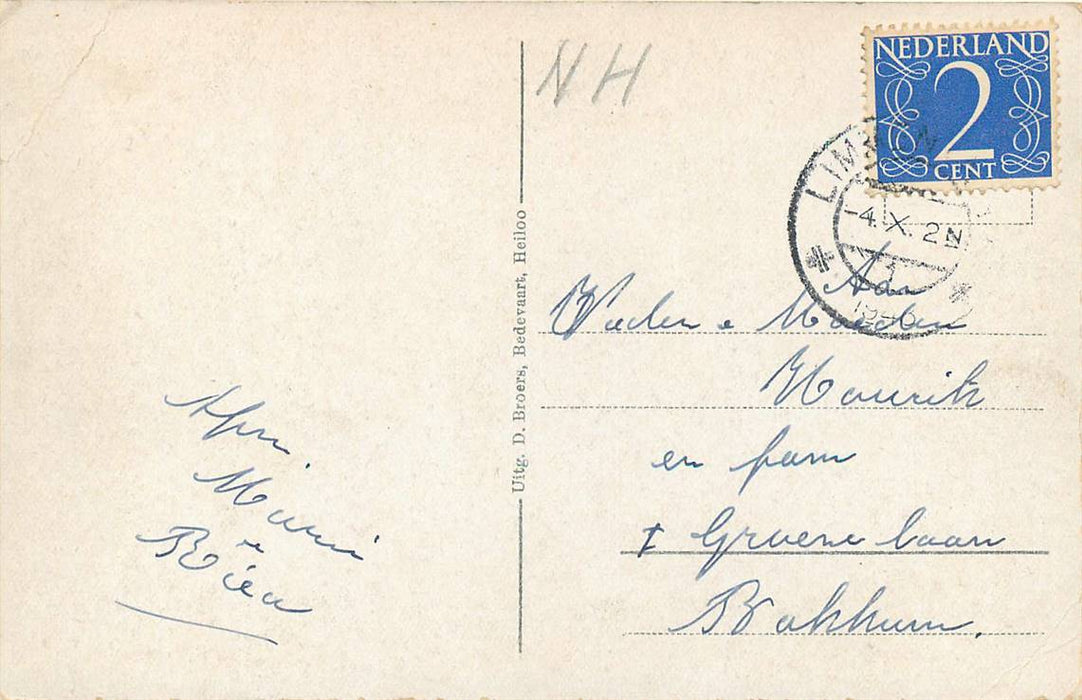 NH
NEDERLAND
2
CENT
LIMMEN
-4.X.2N
Uitg. D. Broers, Bedevaart, Heiloo
Aan
Vader e Moeder
Mourik
en fam
Groene laan
Bakkum.
Afz.
Marie
e
Riea